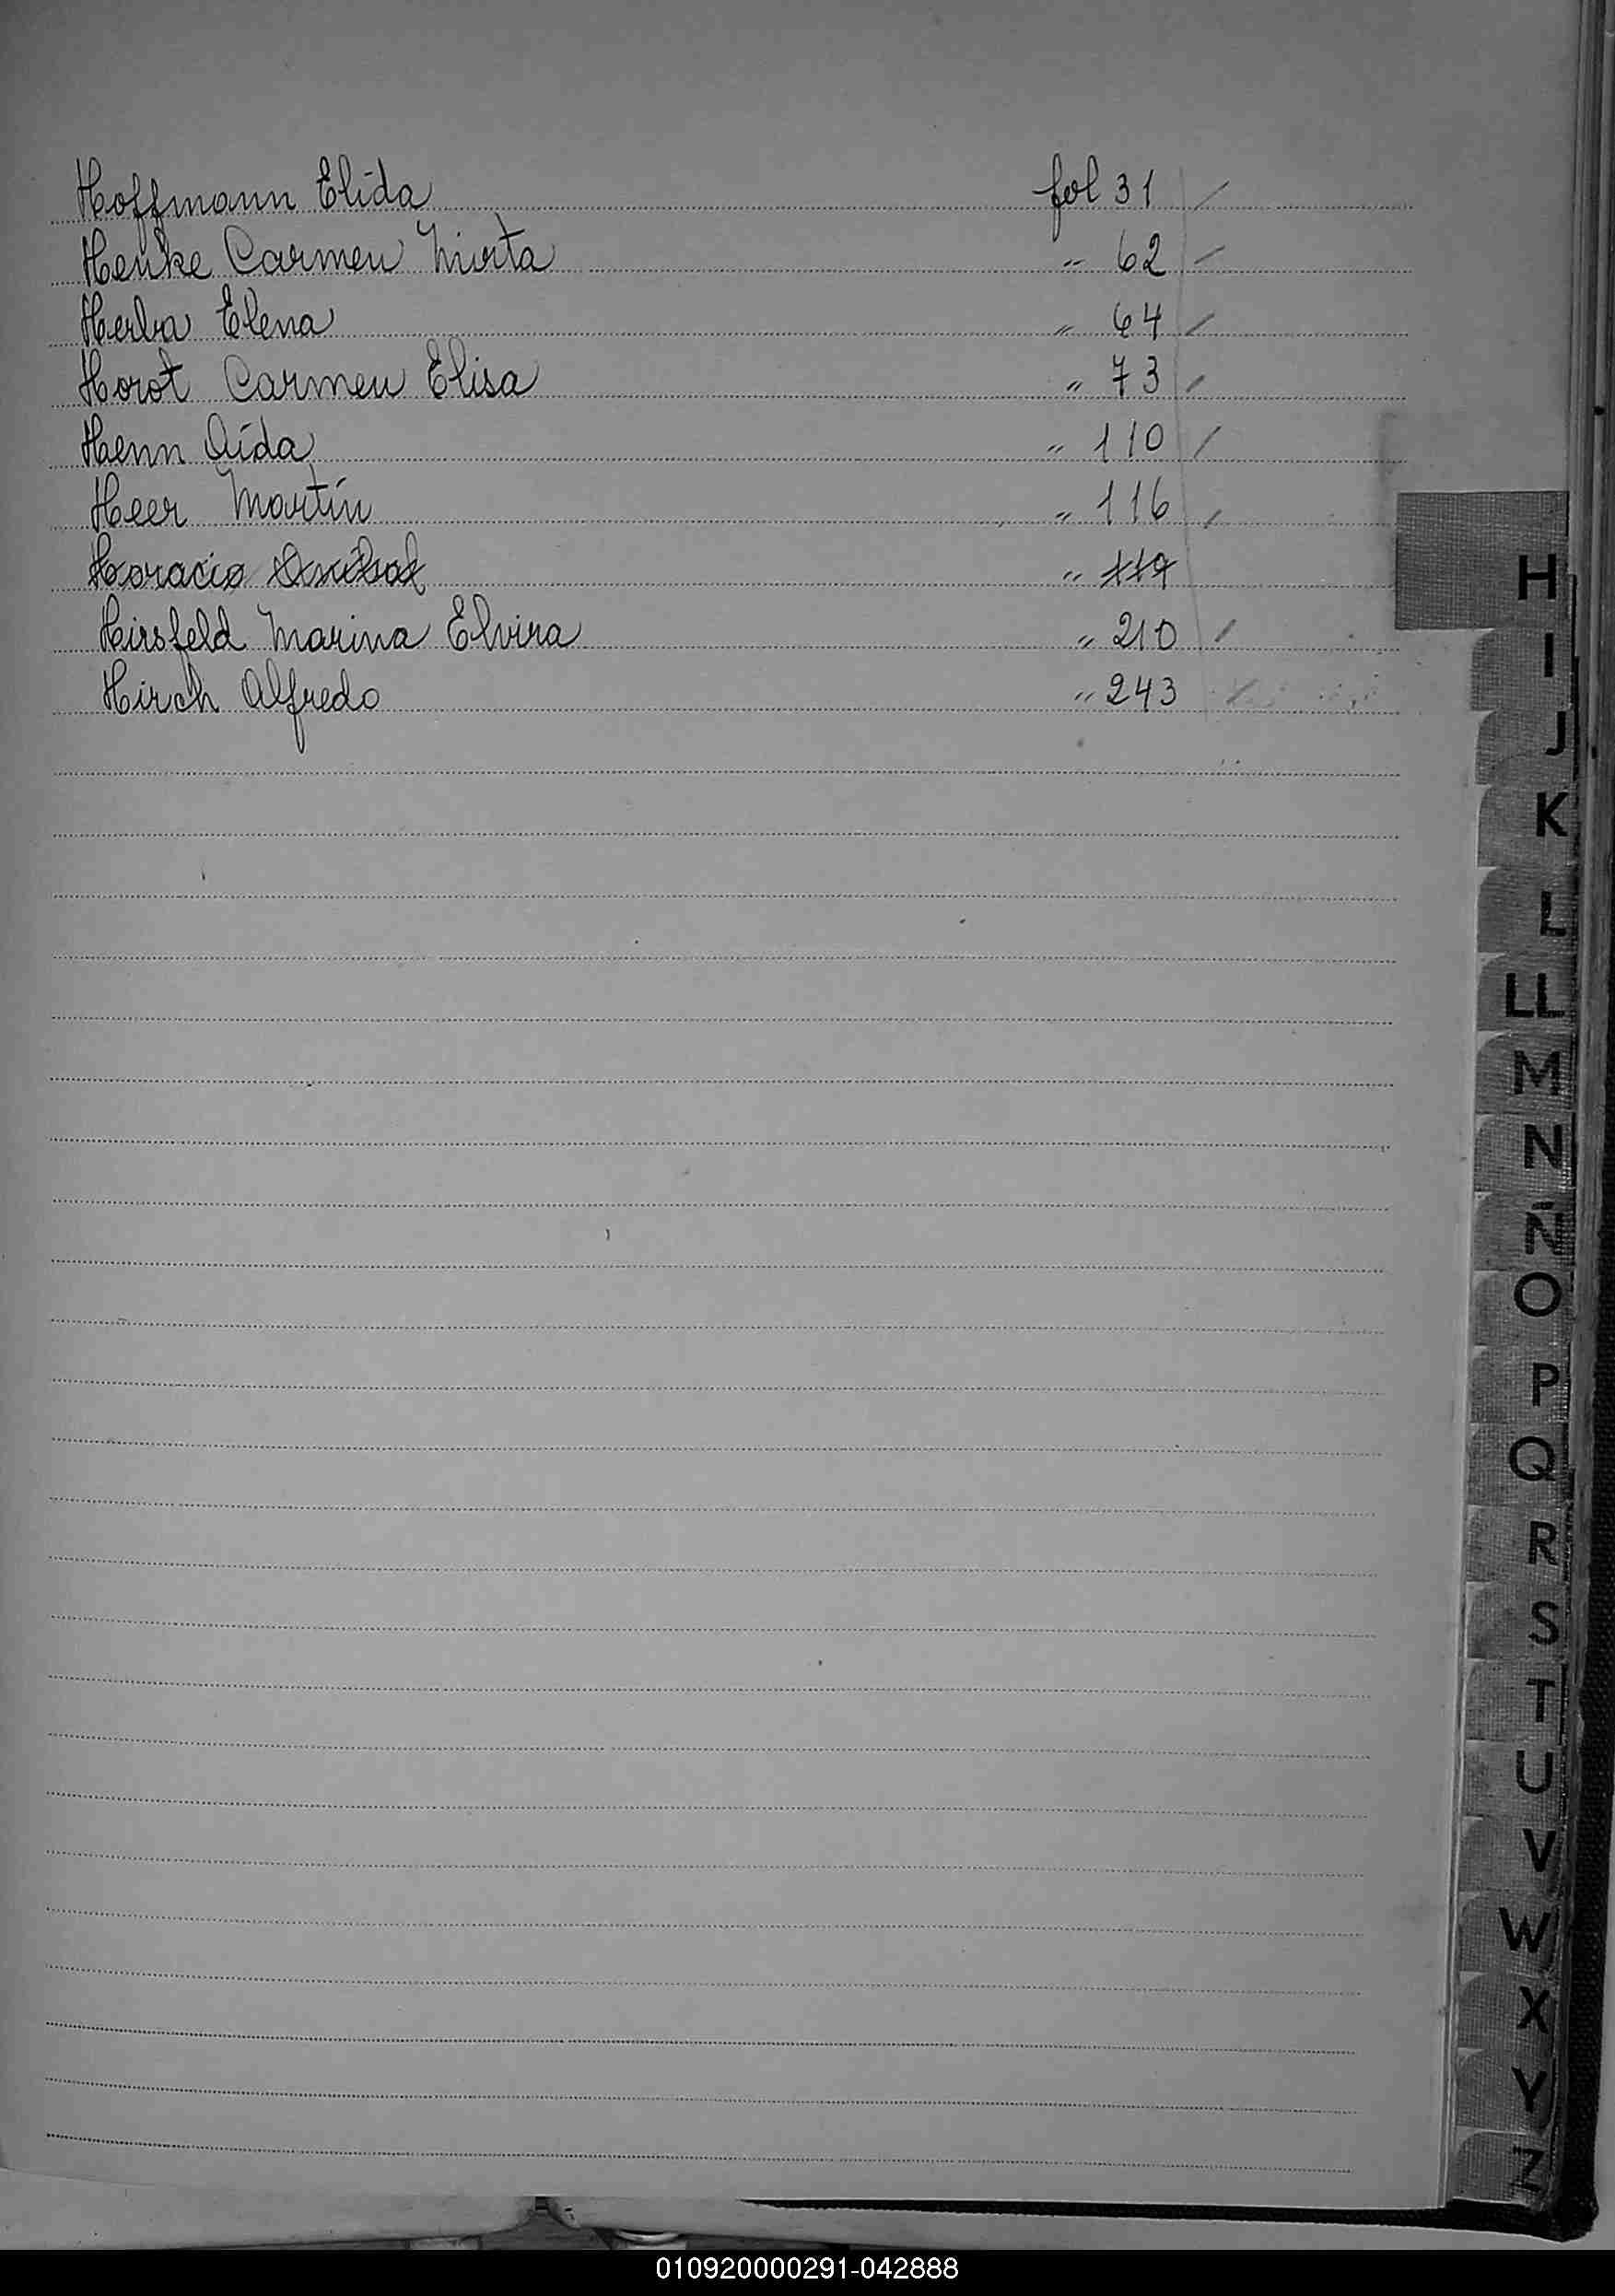 Hoffmann Elida fol 31 /
Henke Carmen Mirta " 62 /
Herba Elena " 64 /
Horot Carmen Elisa " 73 /
Henn Aída " 110 /
Heer Martín " 116 /
Horacio Aníbal " 119
Hirsfeld Marina Elvira " 210 /
Hirch Alfredo " 243 /
H
I
J
K
L
LL
M
N
Ñ
O
P
Q
R
S
T
U
V
W
X
Y
Z
010920000291-042888